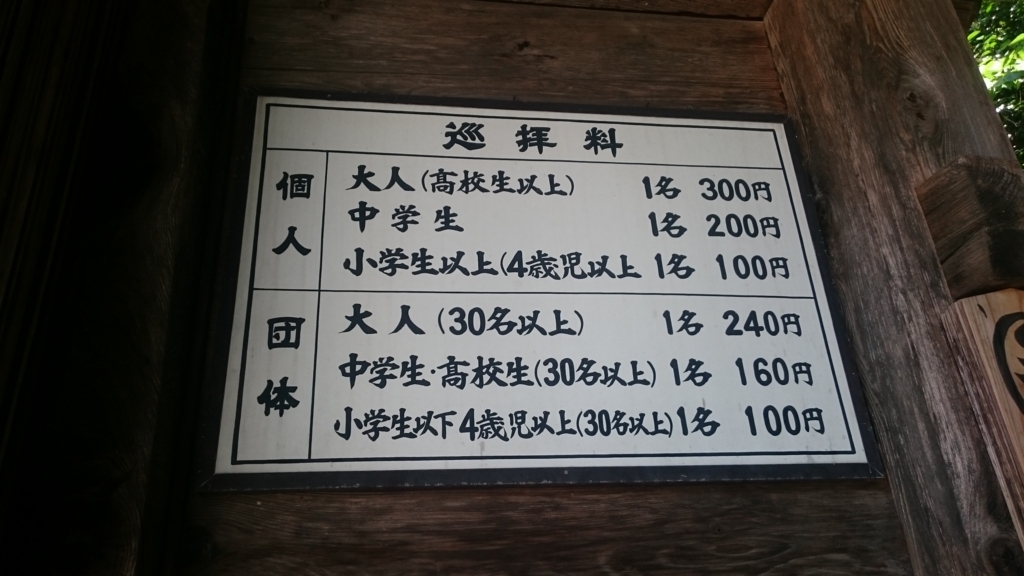 巡拝料
個人
大人(高校生以上) 1名 300円
中学生 1名 200円
小学生以上(4歳児以上 1名 100円
団体
大人(30名以上) 1名 240円
中学生・高校生(30名以上) 1名 160円
小学生以下4歳児以上(30名以上) 1名 100円